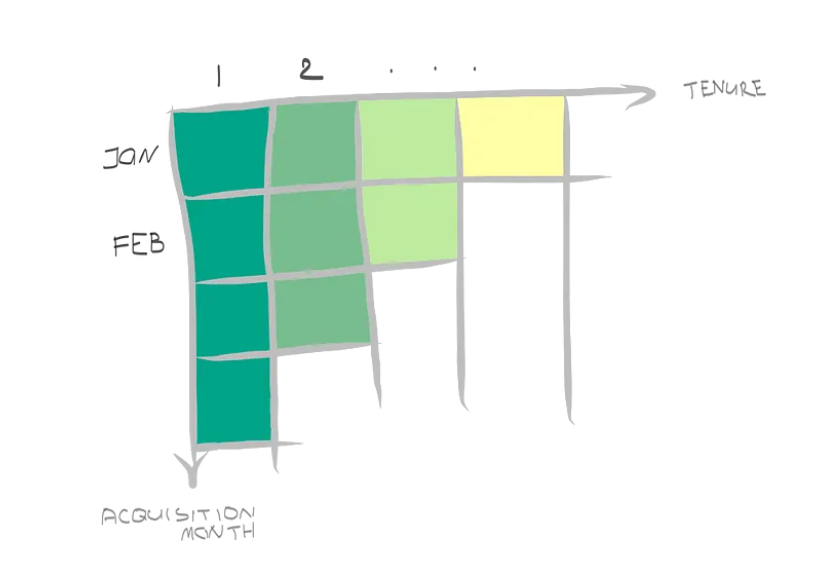 1 2 . . .
TENURE
JAN
FEB
ACQUISITION
MONTH